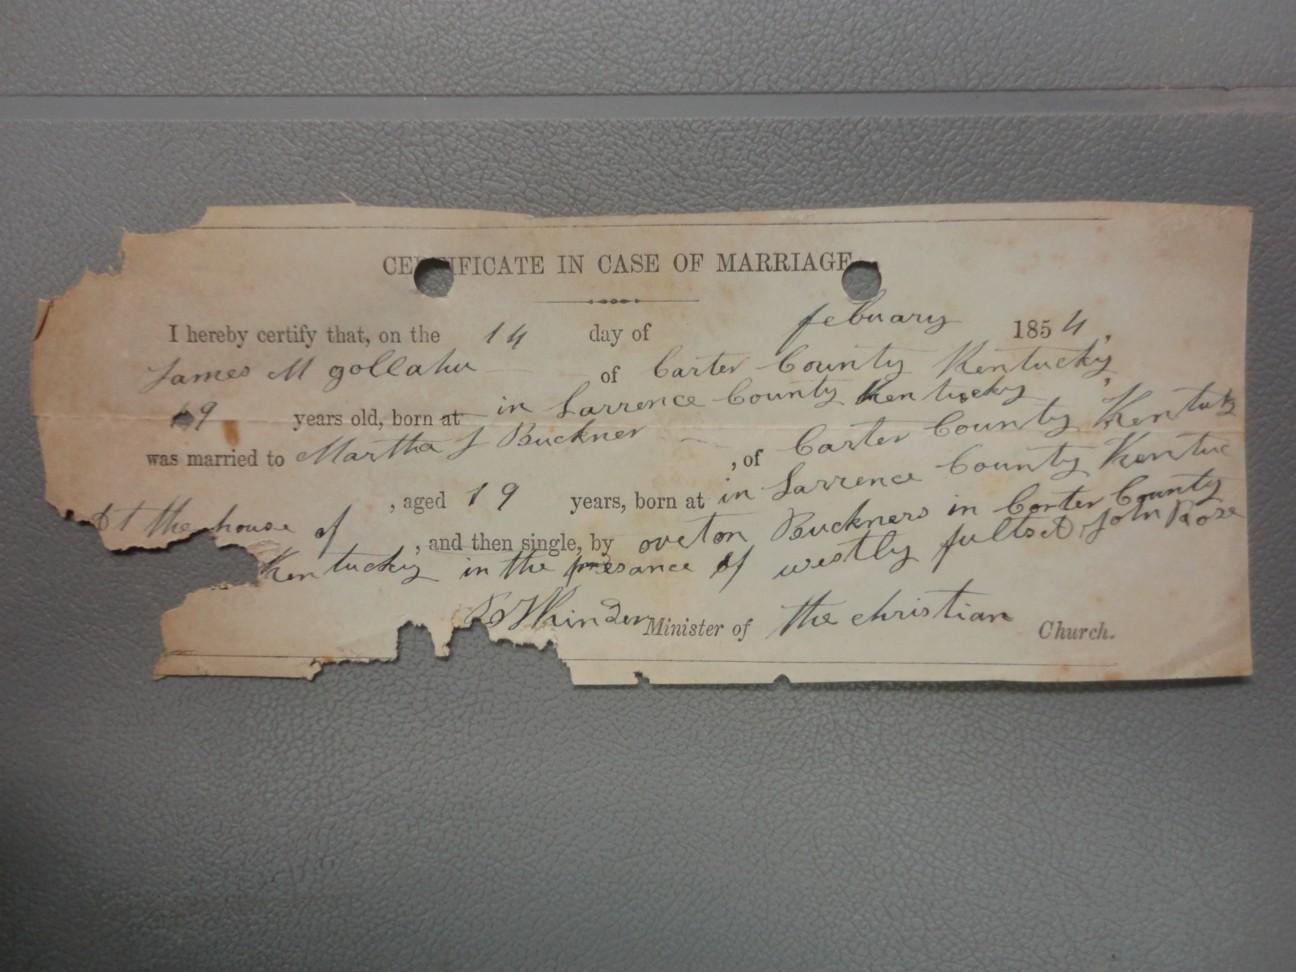 CERTIFICATE IN CASE OF MARRIAGE
I hereby certify that, on the 14 day of febuary 1854,
James M gollahu of Carter County Kentucky,
19 years old, born at in Larrence County Kentucky
was married to Martha J Buckner , of Carter County Kentuk
, aged 19 years, born at in Larrence County Kentuc
At the house of , and then single, by oveton Buckners in Corter County
Kentucky in the presance of westly fults & John Rose
Minister of the christian Church.